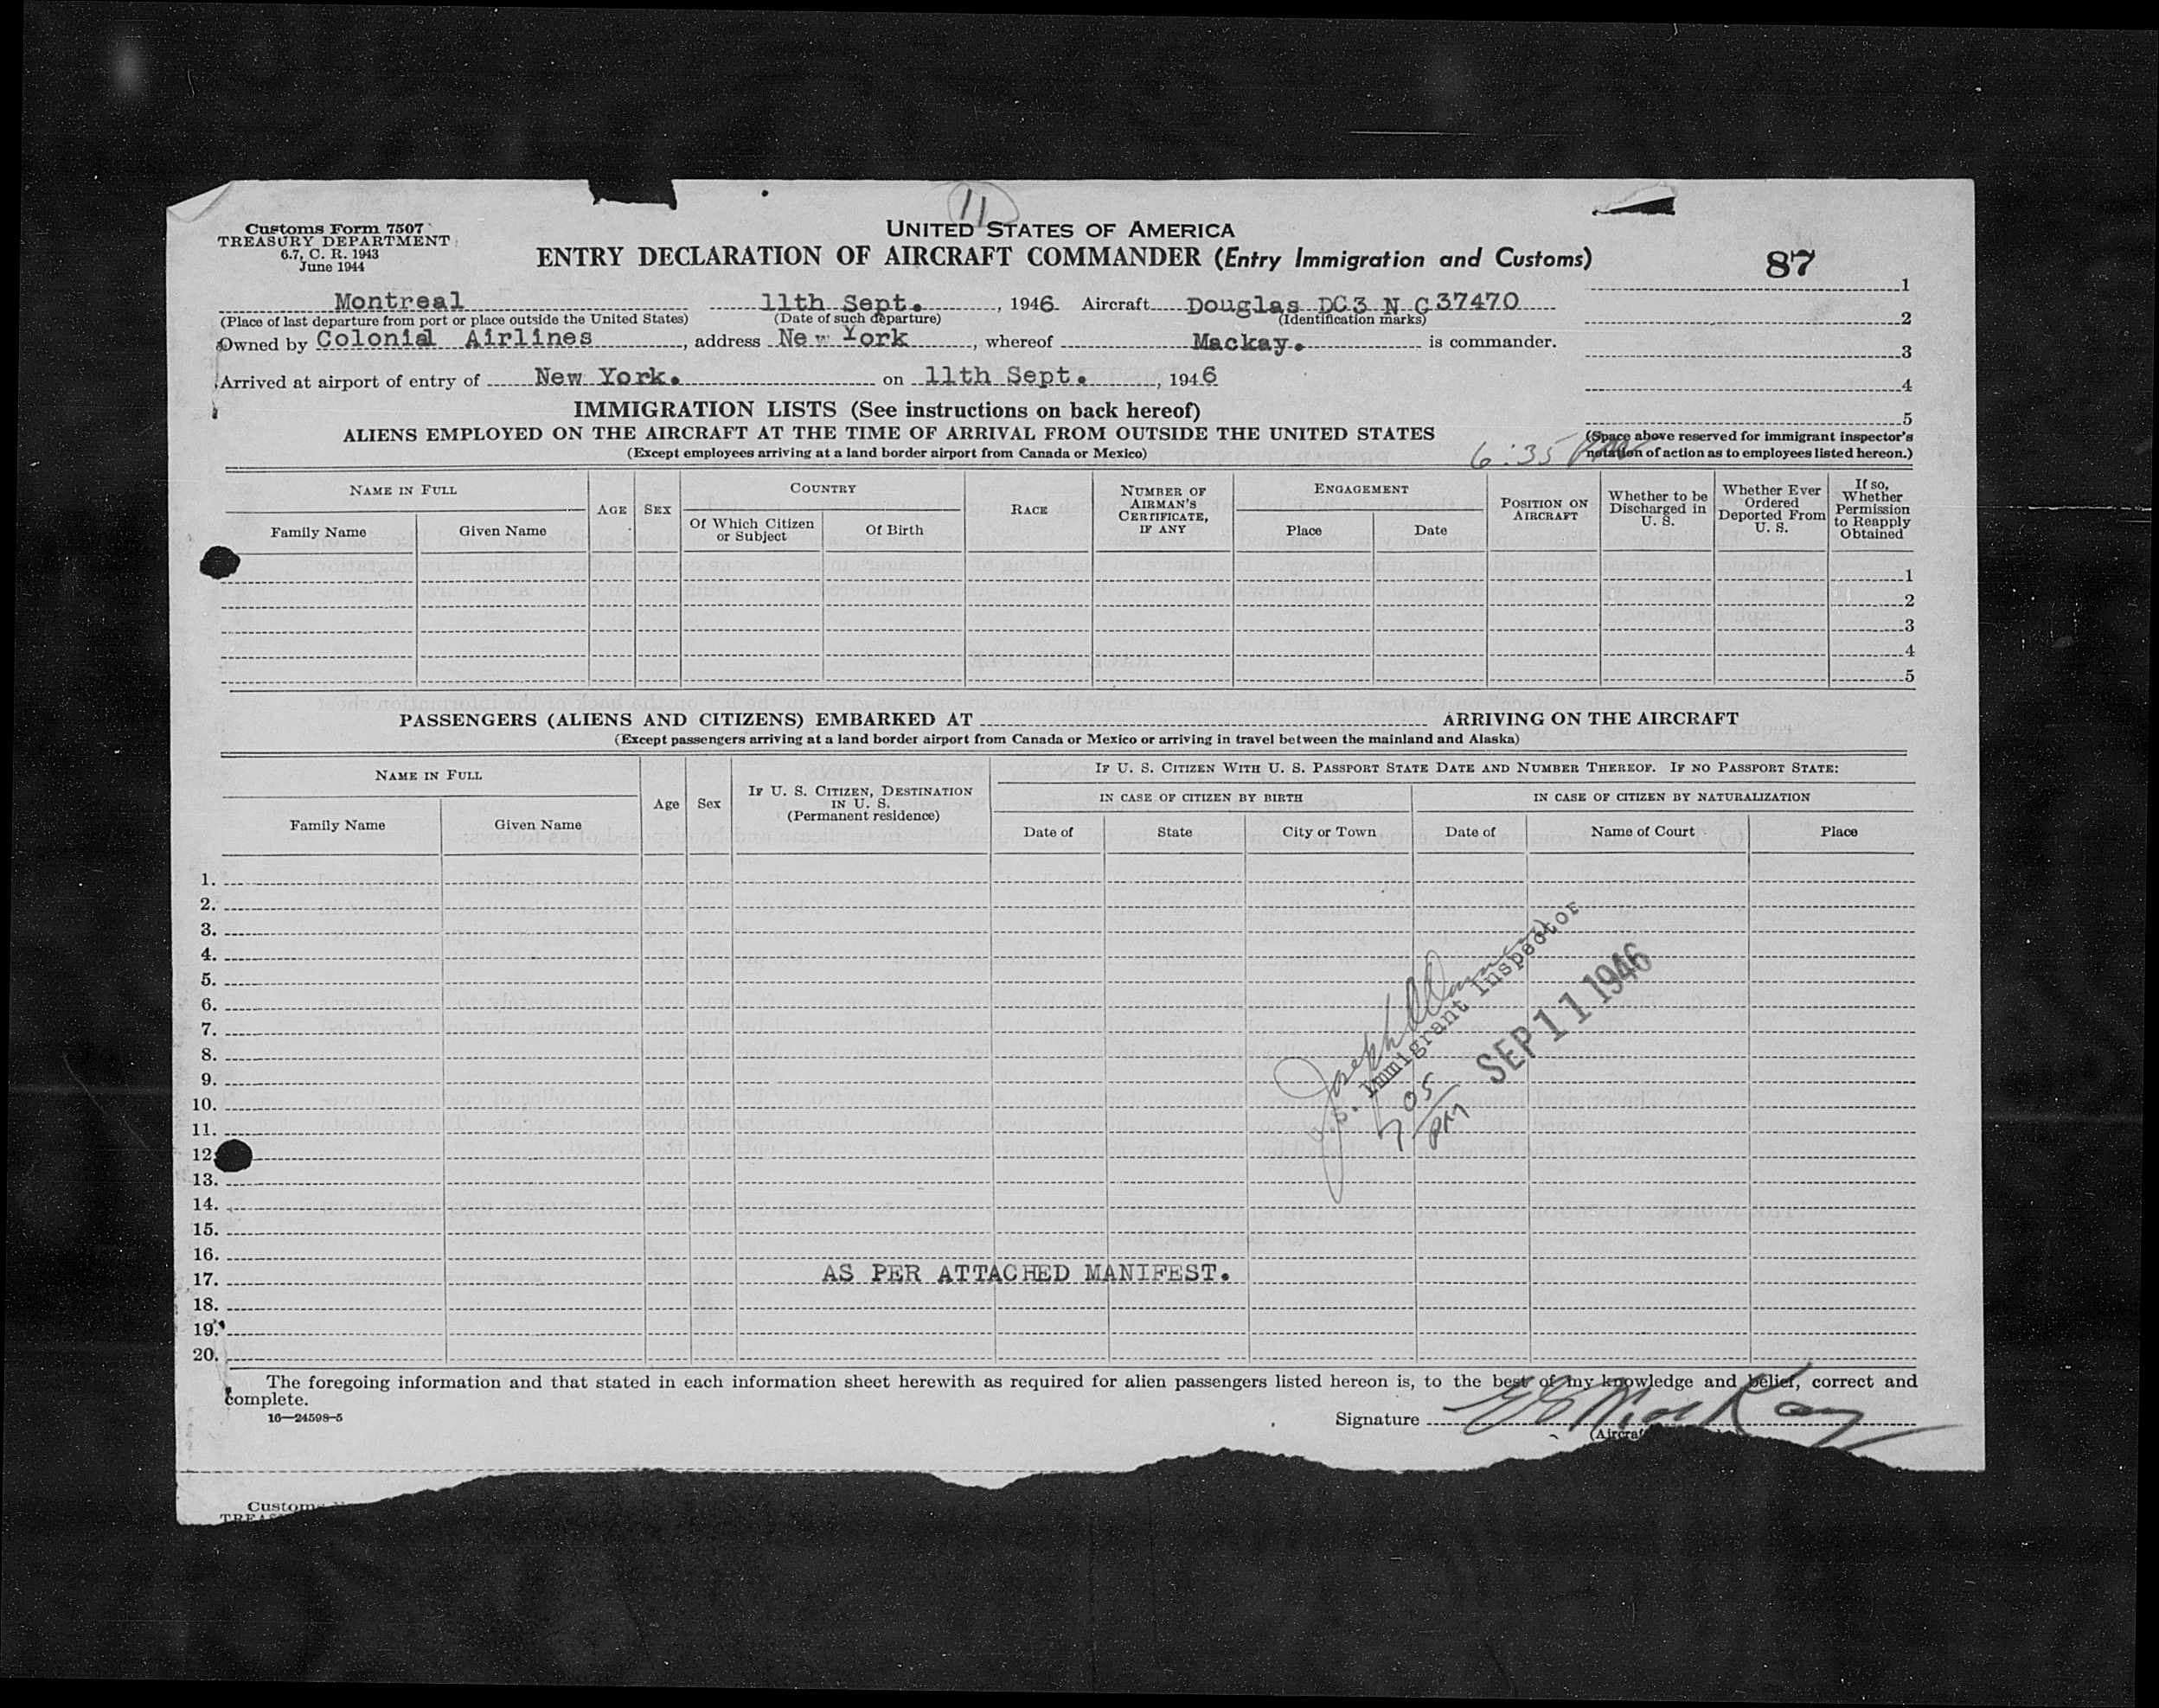 11
Customs Form 7507
TREASURY DEPARTMENT
6.7, C. R. 1943
June 1944
UNITED STATES OF AMERICA
ENTRY DECLARATION OF AIRCRAFT COMMANDER (Entry Immigration and Customs)
87
Montreal 11th Sept. , 1946 Aircraft Douglas DC3 N C 37470
(Place of last departure from port or place outside the United States) (Date of such departure) (Identification marks)
Owned by Colonial Airlines , address New York , whereof Mackay. is commander.
Arrived at airport of entry of New York. on 11th Sept. , 1946
1
2
3
4
5
(Space above reserved for immigrant inspector's
notation of action as to employees listed hereon.)
IMMIGRATION LISTS (See instructions on back hereof)
ALIENS EMPLOYED ON THE AIRCRAFT AT THE TIME OF ARRIVAL FROM OUTSIDE THE UNITED STATES
(Except employees arriving at a land border airport from Canada or Mexico)
6:35 PM
NAME IN FULL
Family Name Given Name
AGE
SEX
COUNTRY
Of Which Citizen or Subject
Of Birth
RACE
NUMBER OF AIRMAN'S CERTIFICATE, IF ANY
ENGAGEMENT
Place Date
POSITION ON AIRCRAFT
Whether to be Discharged in U. S.
Whether Ever Ordered Deported From U. S.
If so, Whether Permission to Reapply Obtained
1
2
3
4
5
PASSENGERS (ALIENS AND CITIZENS) EMBARKED AT ARRIVING ON THE AIRCRAFT
(Except passengers arriving at a land border airport from Canada or Mexico or arriving in travel between the mainland and Alaska)
NAME IN FULL
Family Name Given Name
Age
Sex
IF U. S. CITIZEN, DESTINATION IN U. S.
(Permanent residence)
IF U. S. CITIZEN WITH U. S. PASSPORT STATE DATE AND NUMBER THEREOF. IF NO PASSPORT STATE:
IN CASE OF CITIZEN BY BIRTH IN CASE OF CITIZEN BY NATURALIZATION
Date of State City or Town Date of Name of Court Place
1.
2.
3.
4.
5.
6.
7.
8.
9.
10.
11.
12.
13.
14.
15.
16.
17. AS PER ATTACHED MANIFEST.
18.
19.
20.
Joseph
Immigrant Inspector
7 05 PM
SEP 11 1946
The foregoing information and that stated in each information sheet herewith as required for alien passengers listed hereon is, to the best of my knowledge and belief, correct and
complete.
16—24598-5
Signature MacKay
Customs